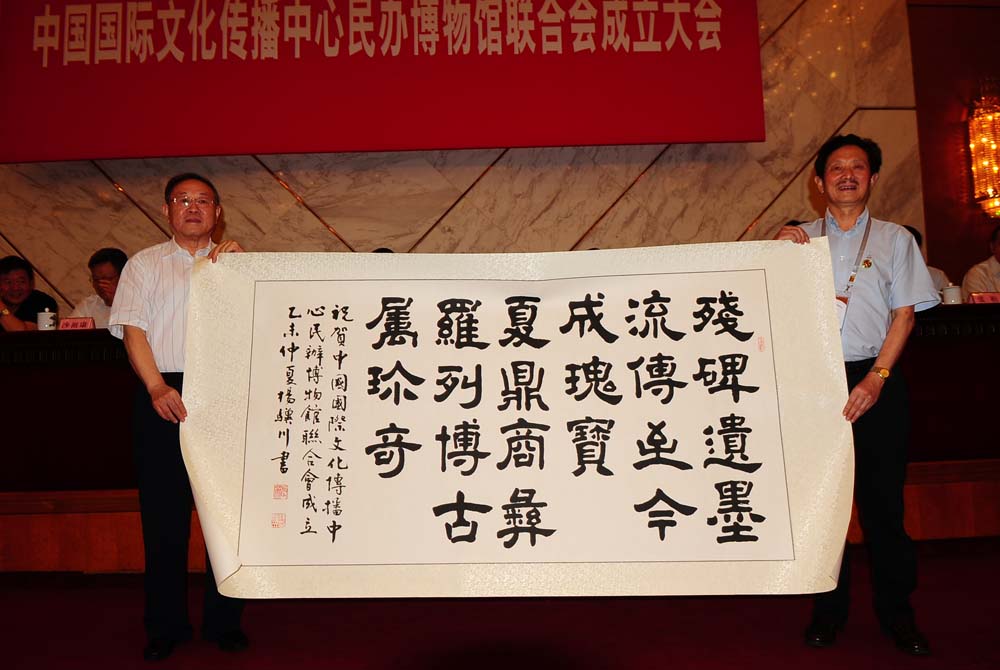 中国国际文化传播中心民办博物馆联合会成立大会
殘碑遺墨
流傳至今
成瑰寶
夏鼎商彝
羅列博古
属珍奇
祝賀中國國際文化傳播中
心民辦博物館聯合會成立
乙未仲夏楊驥川書
沙祖康